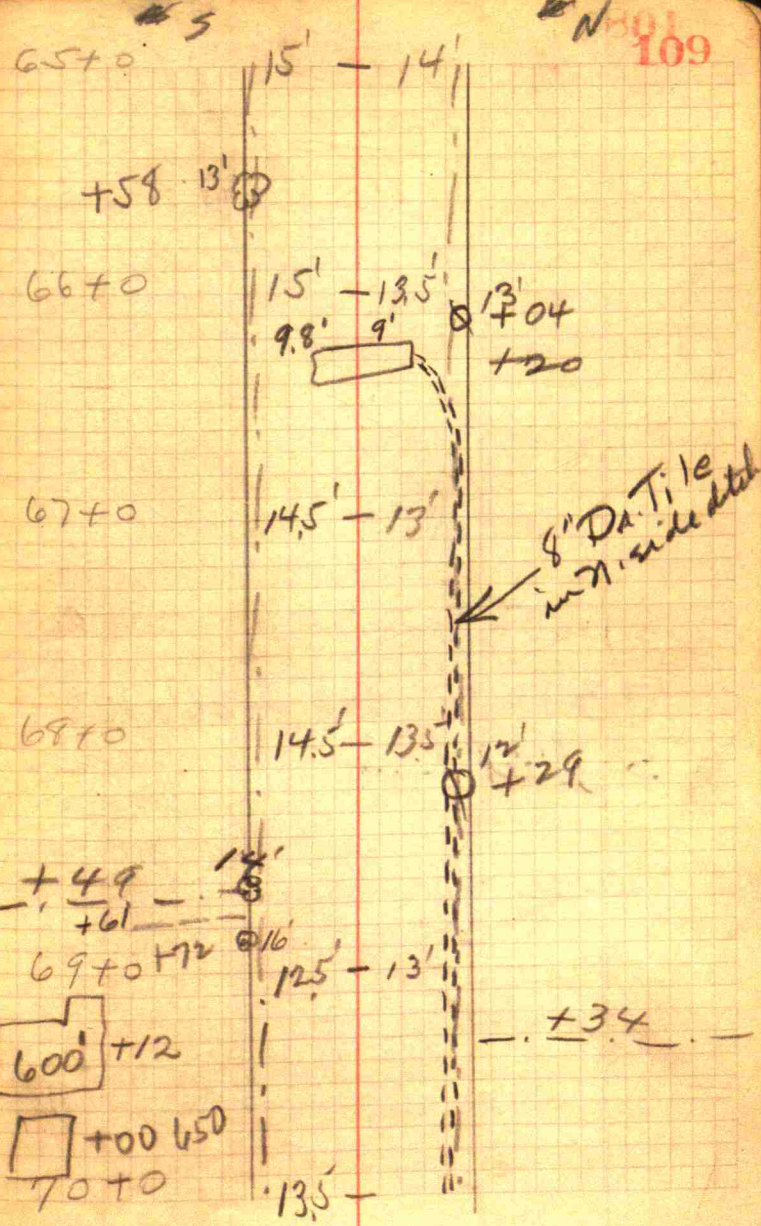 S N
109
65+0 15' — 14'
+58 13'
66+0 15' — 13.5' 13' +04
9.8' 9' +20
67+0 14.5' — 13'
8" Dr. Tile
in N. side ditch
68+0 14.5' — 13.5' 12' +29
+49 14'
+61
+72 16'
69+0 12.5' — 13'
+34
600' +12
+00 650
70+0 13.5 —